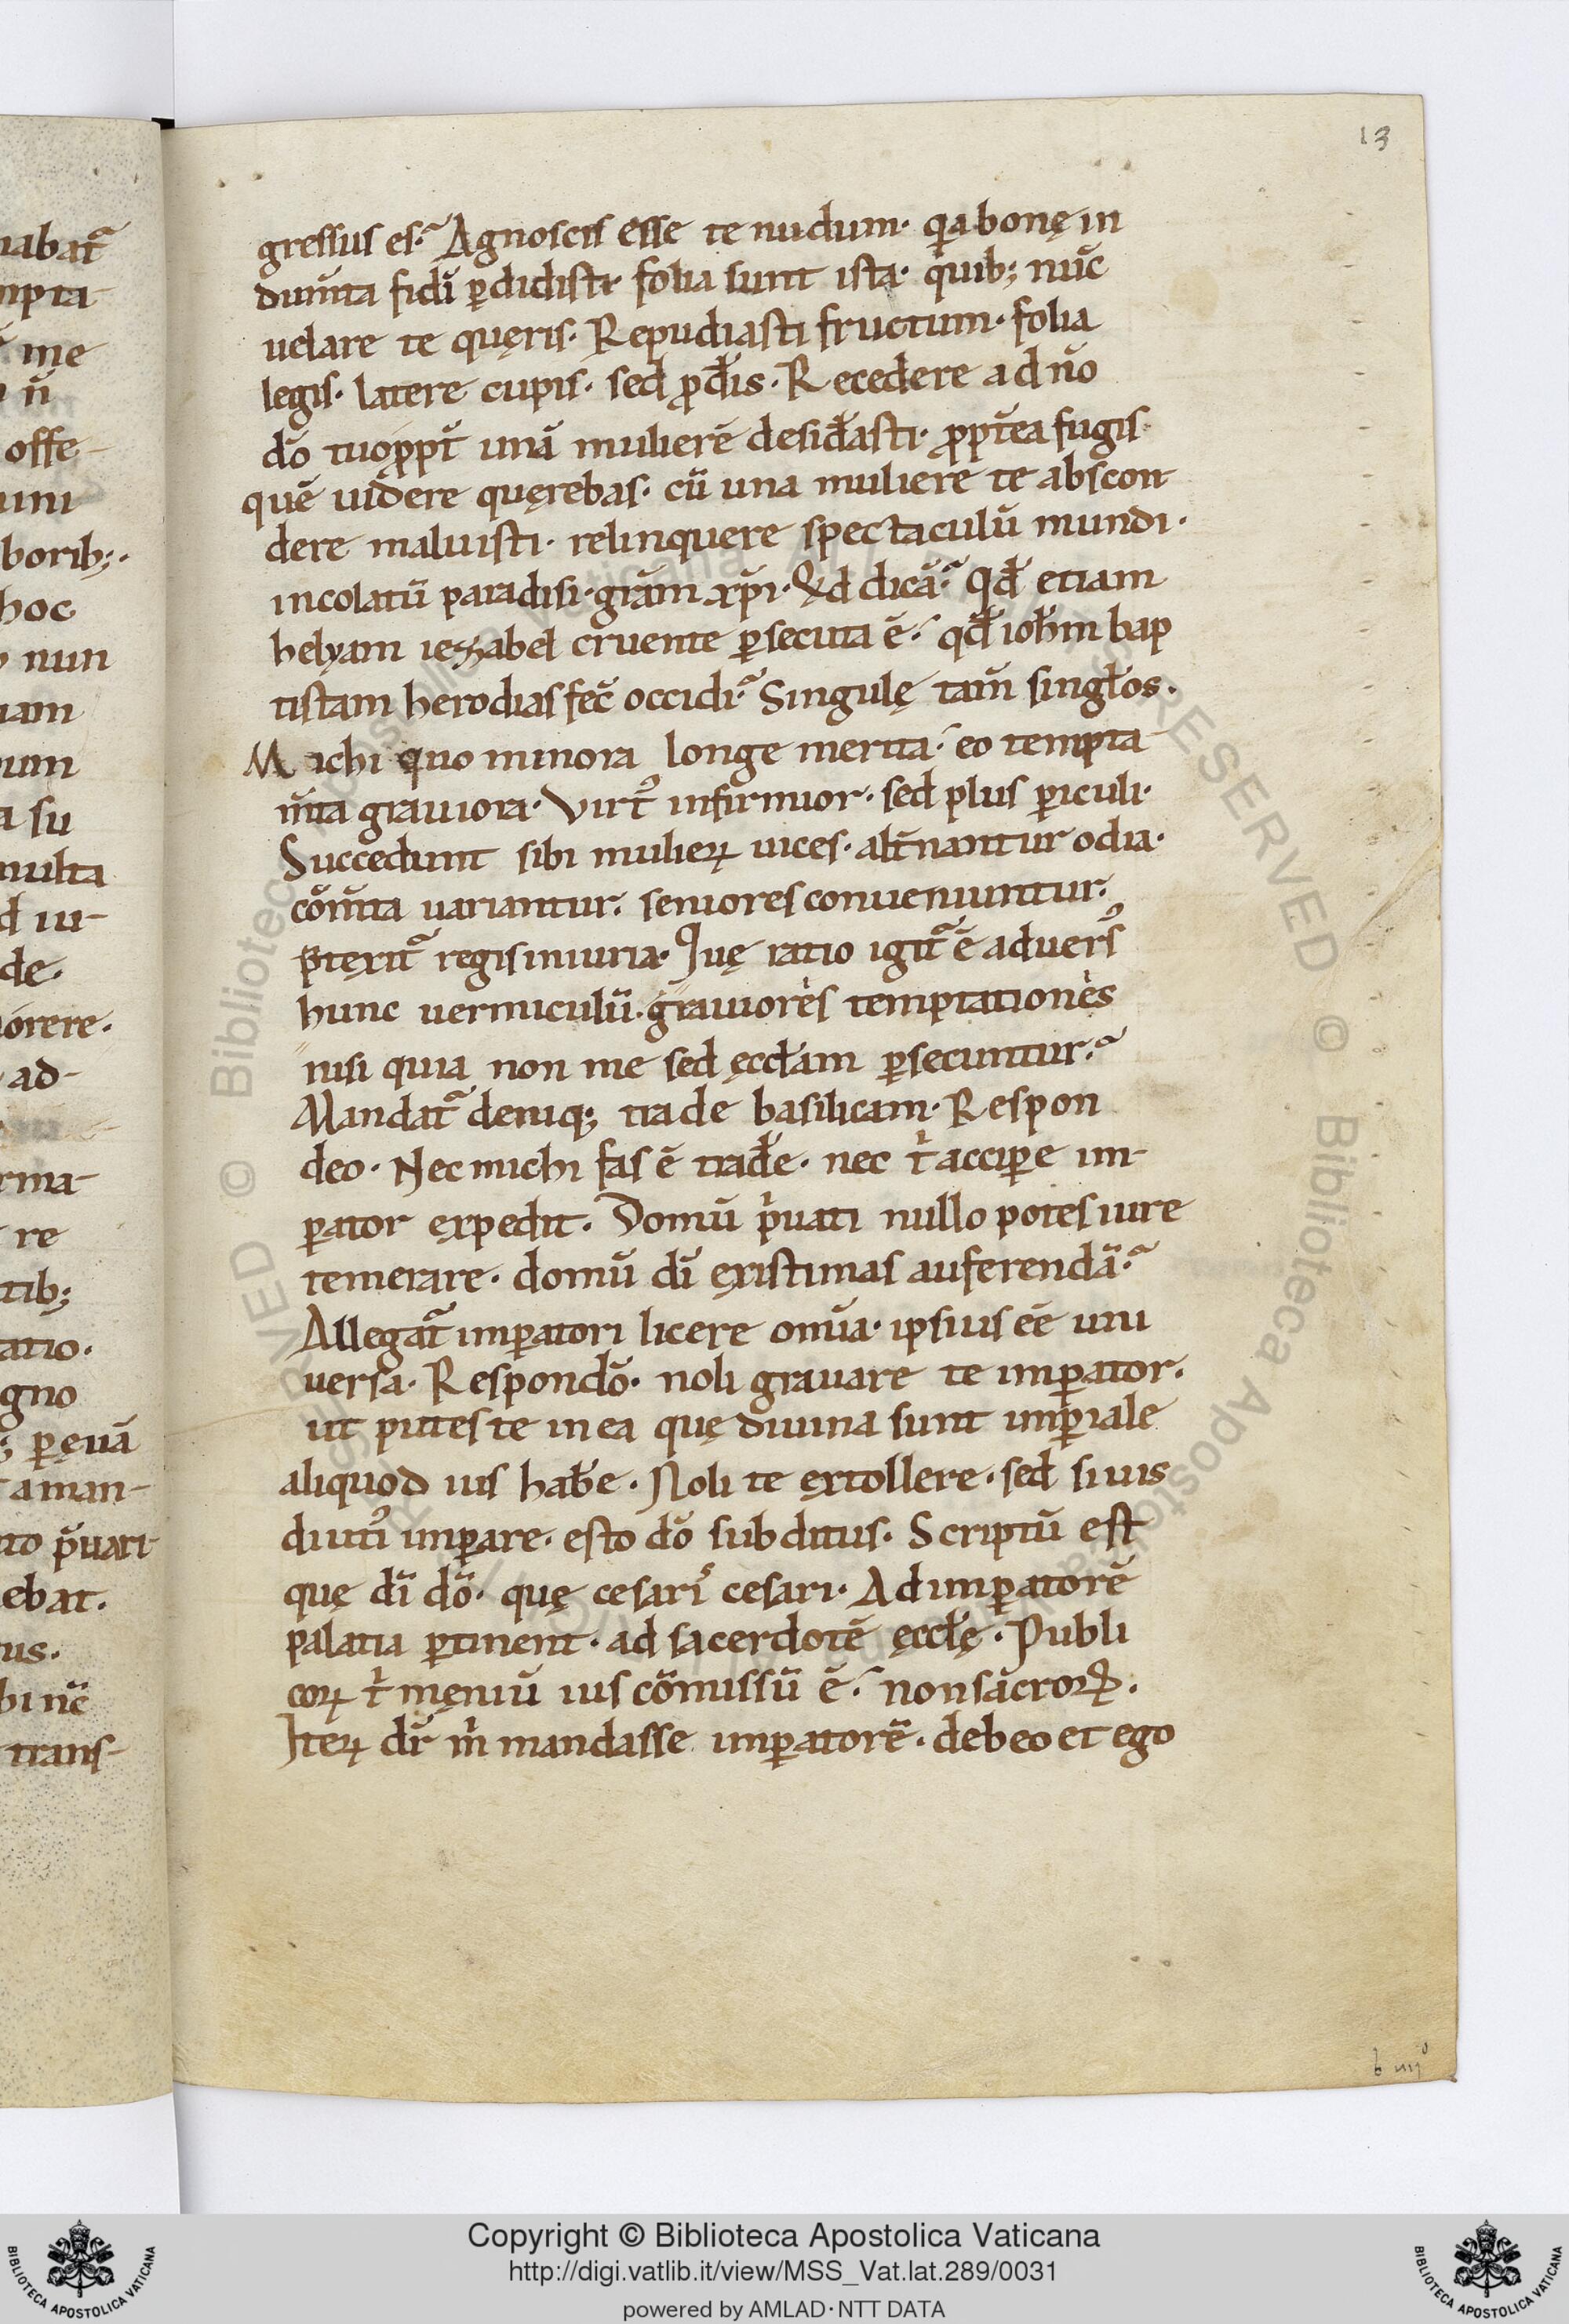 13
gressus es. Agnoscis esse te nudum. qa bonę in
dum̄ta fidī ꝑdidisti folia sunt ista. quib; nūc
uelare te quęris. Repudiasti fructum. folia
legis. latere cupis. sed ꝓd̄is. Recedere a dn̄o
dō tuo ꝓpt̄ unā mulierē desid̄asti. ꝓpt̄ea fugis
quē uidere quęrebas. cū una muliere te abscon
dere maluisti. relinquere spectaculū mundi.
incolatū paradisi. grām xp̄i. Qd dicā. qd̄ etiam
helyam iezabel cruente ꝑsecuta ē. qd̄ ioh̄m bap
tistam herodias fec̄ occidi. Singulę tam̄ singłos.
Michi quo minora longe merita. eo tempta
m̄ta grauiora. Virt᷒ infirmior. sed plus ꝑiculi.
Succedunt sibi mulieꝝ uices. alt̄nantur odia.
cōm̄ta uariantur. seniores conueniuntur.
p̄tęxit᷑ regis iniuria. Quę ratio igit᷑ ē aduers᷒
hunc uermiculū. grauiores temptationes
nisi quia non me sed ęccłam ꝑsecuntur.
Mandat᷑ deniq; trade basilicam. Respon
deo. Nec michi fas ē trad̄e. nec t̄ accipe im-
ꝑator ęxpedit. Domū p̄uati nullo potes iure
temerare. domū dī ęxistimas auferendā.
Allegat᷑ imꝑatori licere om̄ia. ipsius eē uni
uersa. Respondō. noli grauare te imꝑator.
ut putes te in ea quę diuina sunt imꝑiale
aliquod ius hab̄e. Noli te ęxtollere. sed si uis
diuti᷒ imꝑare. esto dō subditus. Scriptū est
quę dī dō. quę cesaris cesari. Ad imꝑatorē
palatia ꝑtinent. ad sacerdotē ęccłę. Publi
coꝝ t̄ męniū ius cōmissū ē. non sacroꝝ.
Iteꝝ dr̄ m̄ mandasse imꝑatorē. debeo et ego
b iiij
Copyright © Biblioteca Apostolica Vaticana
http://digi.vatlib.it/view/MSS_Vat.lat.289/0031
powered by AMLAD·NTT DATA